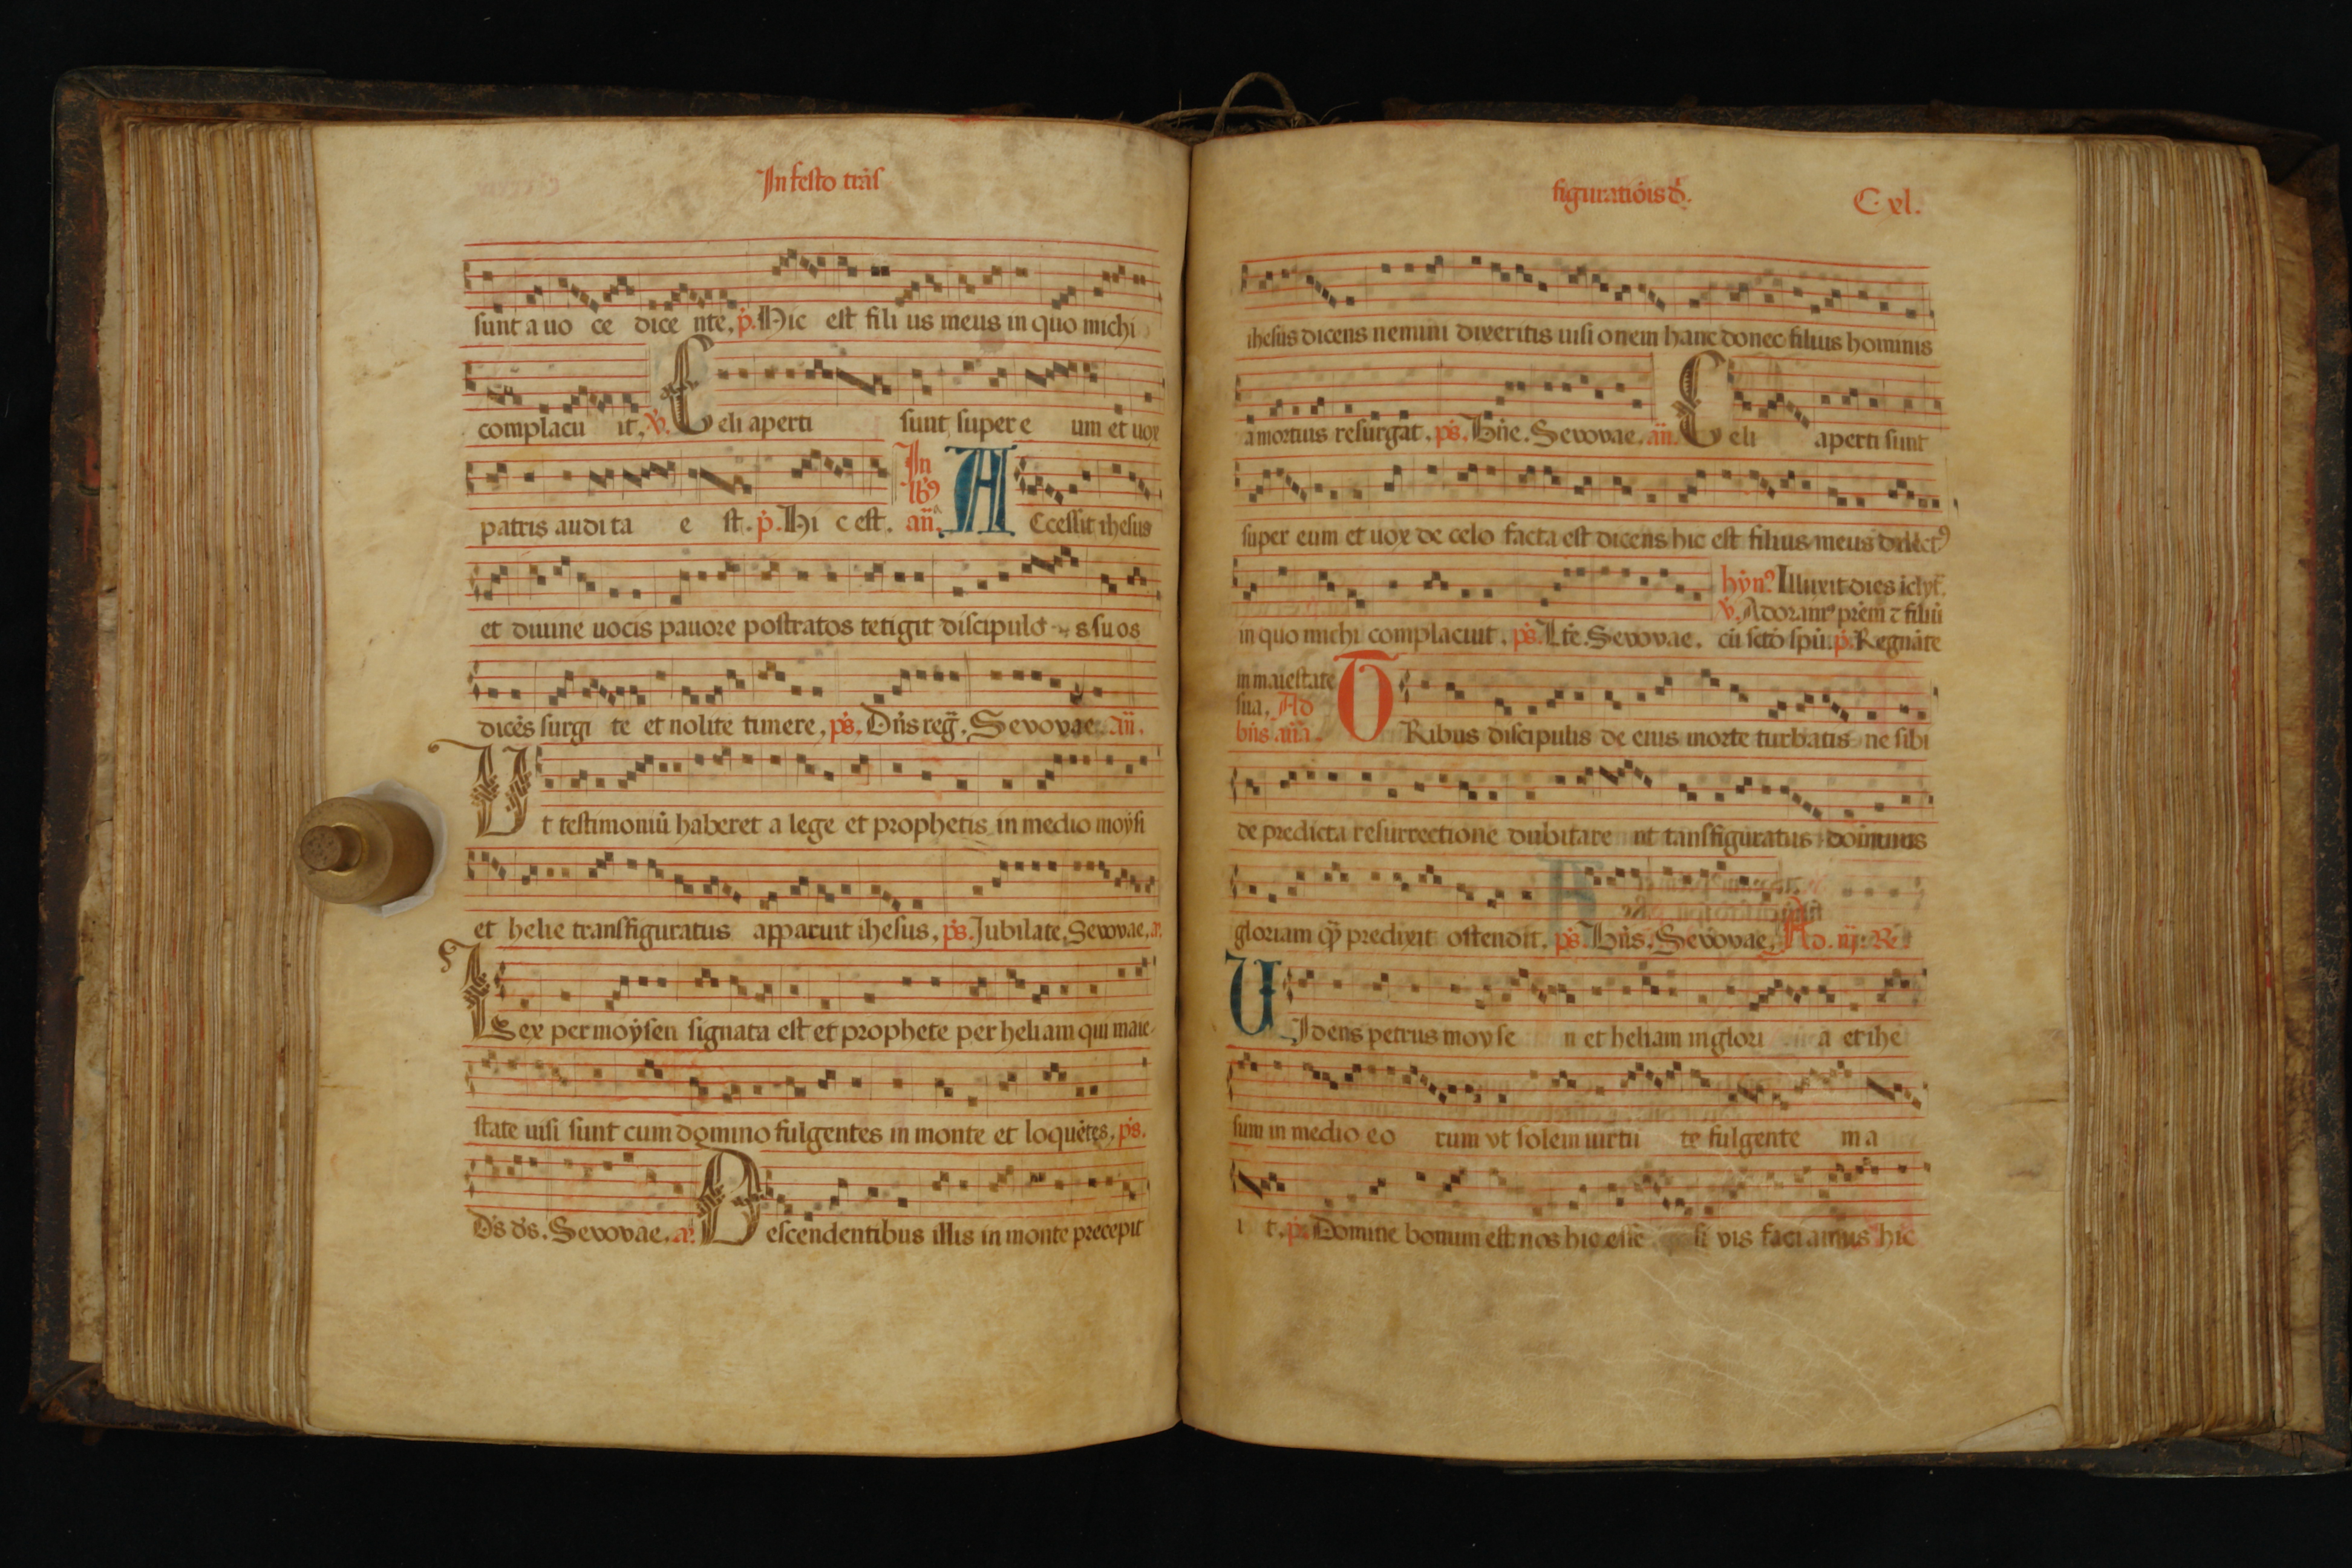 In festo trãs
sunt a uo ce dice nte, p̃. Hic est fili us meus in quo michi
complacu it, v̾. Celi aperti sunt super e um et uox
patris audi ta e st. p̃. Hi c est. In lb᷒ añ. ACcessit ihesus
et diuine uocis pauore postratos tetigit discipulo s suos
dicẽs surgi te et nolite timere, p̃s. Dñs reg̃. Sevovae. añ.
Ut testimoniũ haberet a lege et prophetis in medio moẏsi
et helie transfiguratus apparuit ihesus, p̃s. Jubilate, Sevovae, a᷒.
LEex per moẏsen signata est et prophete per heliam qui maie-
state uisi sunt cum domino fulgentes in monte et loquẽtes, p̃s.
Ds̃ ds̃. Sevovae. a᷒. Descendentibus illis in monte precepit
figuratiõis d̃.
C xl.
ihesus dicens nemini dixeritis uisi onem hanc donec filius hominis
a mortuis resurgat. p̃s. Bñe. Sevovae. añ. Celi aperti sunt
super eum et uox de celo facta est dicens hic est filius meus dilect᷒
hẏn᷒ Illuxit dies iclyt̃.
v̾. Adoram᷒ prẽm ⁊ filiũ
in quo michi complacuit. p̃s. Lte̾. Sevovae. cũ sctõ spũ. p̃. Regnãte
in maiestate
sua. Ad
bñs. añã.
TRibus discipulis de eius morte turbatis ne sibi
de predicta resurrectione dubitare nt tansfiguratus dominus
gloriam qꝫ̃ predixit ostendit. p̃s. Bñs. Sevovae. Ad. iij. R̃e.
UIdens petrus moyse n et heliam in glori a et ihe
sum in medio eo rum vt solem uirtu te fulgente m a
i t. p̃. Domine bonum est nos hic esse si vis faciamus hic